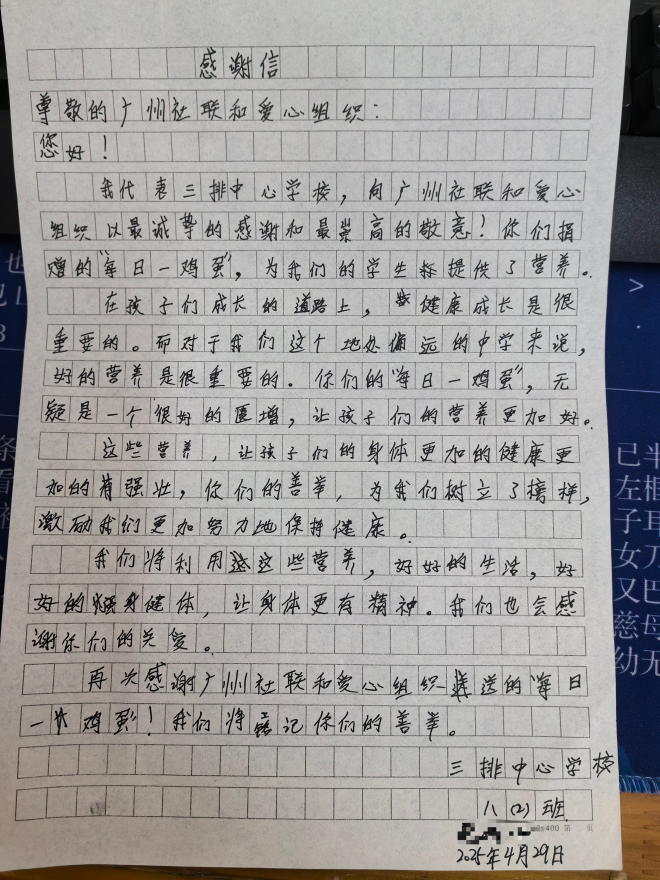 感谢信
尊敬的广州社联和爱心组织：
您好！
我代表三排中心学校，向广州社联和爱心
组织以最诚挚的感谢和最崇高的敬意！你们捐
赠的“每日一鸡蛋”，为我们的学生标提供了营养。
在孩子们成长的道路上，健康成长是很
重要的。而对于我们这个地处偏远的中学来说，
好的营养是很重要的．你们的“每日一鸡蛋”，无
疑是一个很好的匮增，让孩子们的营养更加好。
这些营养，让孩子们的身体更加的健康更
加的有强壮，你们的善举，为我们树立了榜样，
激励我们更加努力地保持健康。
我们将利用这些营养，好好的生活，好
好的健体，让身体更有精神。我们也会感
谢你们的关爱。
再次感谢广州社联和爱心组织送的“每日
一个鸡蛋”！我们将记你们的善举。
三排中心学校
八(2)班
400 第 页
2025年4月29日
也
条
看
已半
左框
子耳
女刀
又巴
慈母
幼无